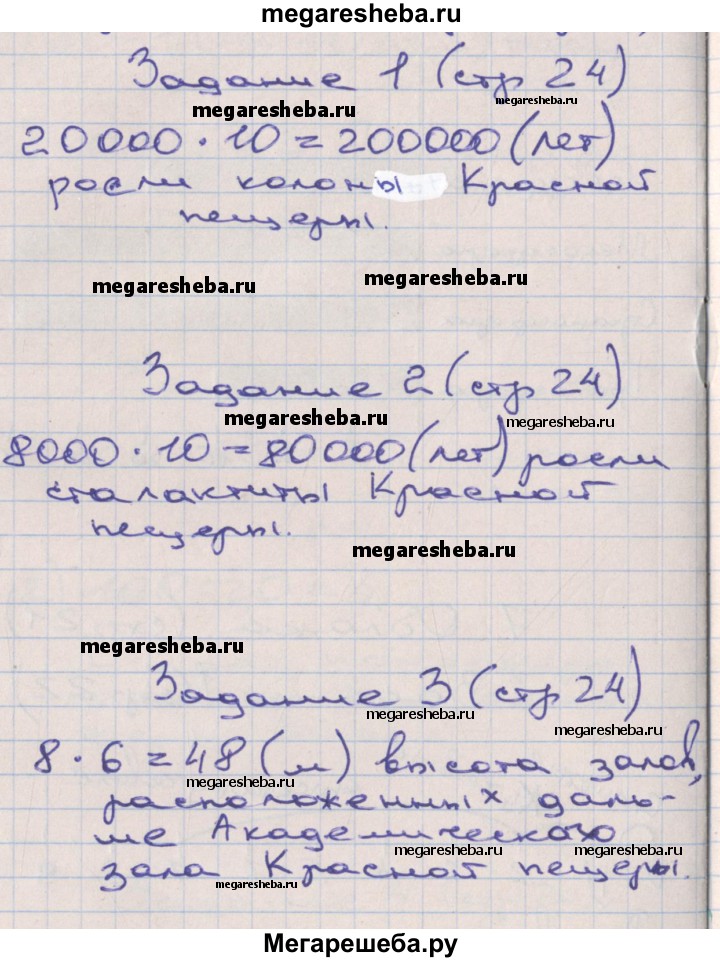 megaresheba.ru
Задание 1 (стр 24)
megaresheba.ru
megaresheba.ru
20000 · 10 = 200000 (лет)
росли колоны Красной
пещеры.
megaresheba.ru
megaresheba.ru
Задание 2 (стр 24)
megaresheba.ru
megaresheba.ru
8000 · 10 = 80000 (лет) росли
сталактиты Красной
пещеры.
megaresheba.ru
megaresheba.ru
Задание 3 (стр 24)
megaresheba.ru
megaresheba.ru
8 · 6 = 48 (м) высота залов,
megaresheba.ru
расположенных даль-
ше Академического
megaresheba.ru
megaresheba.ru
зала Красной пещеры.
megaresheba.ru
Мегарешеба.ру